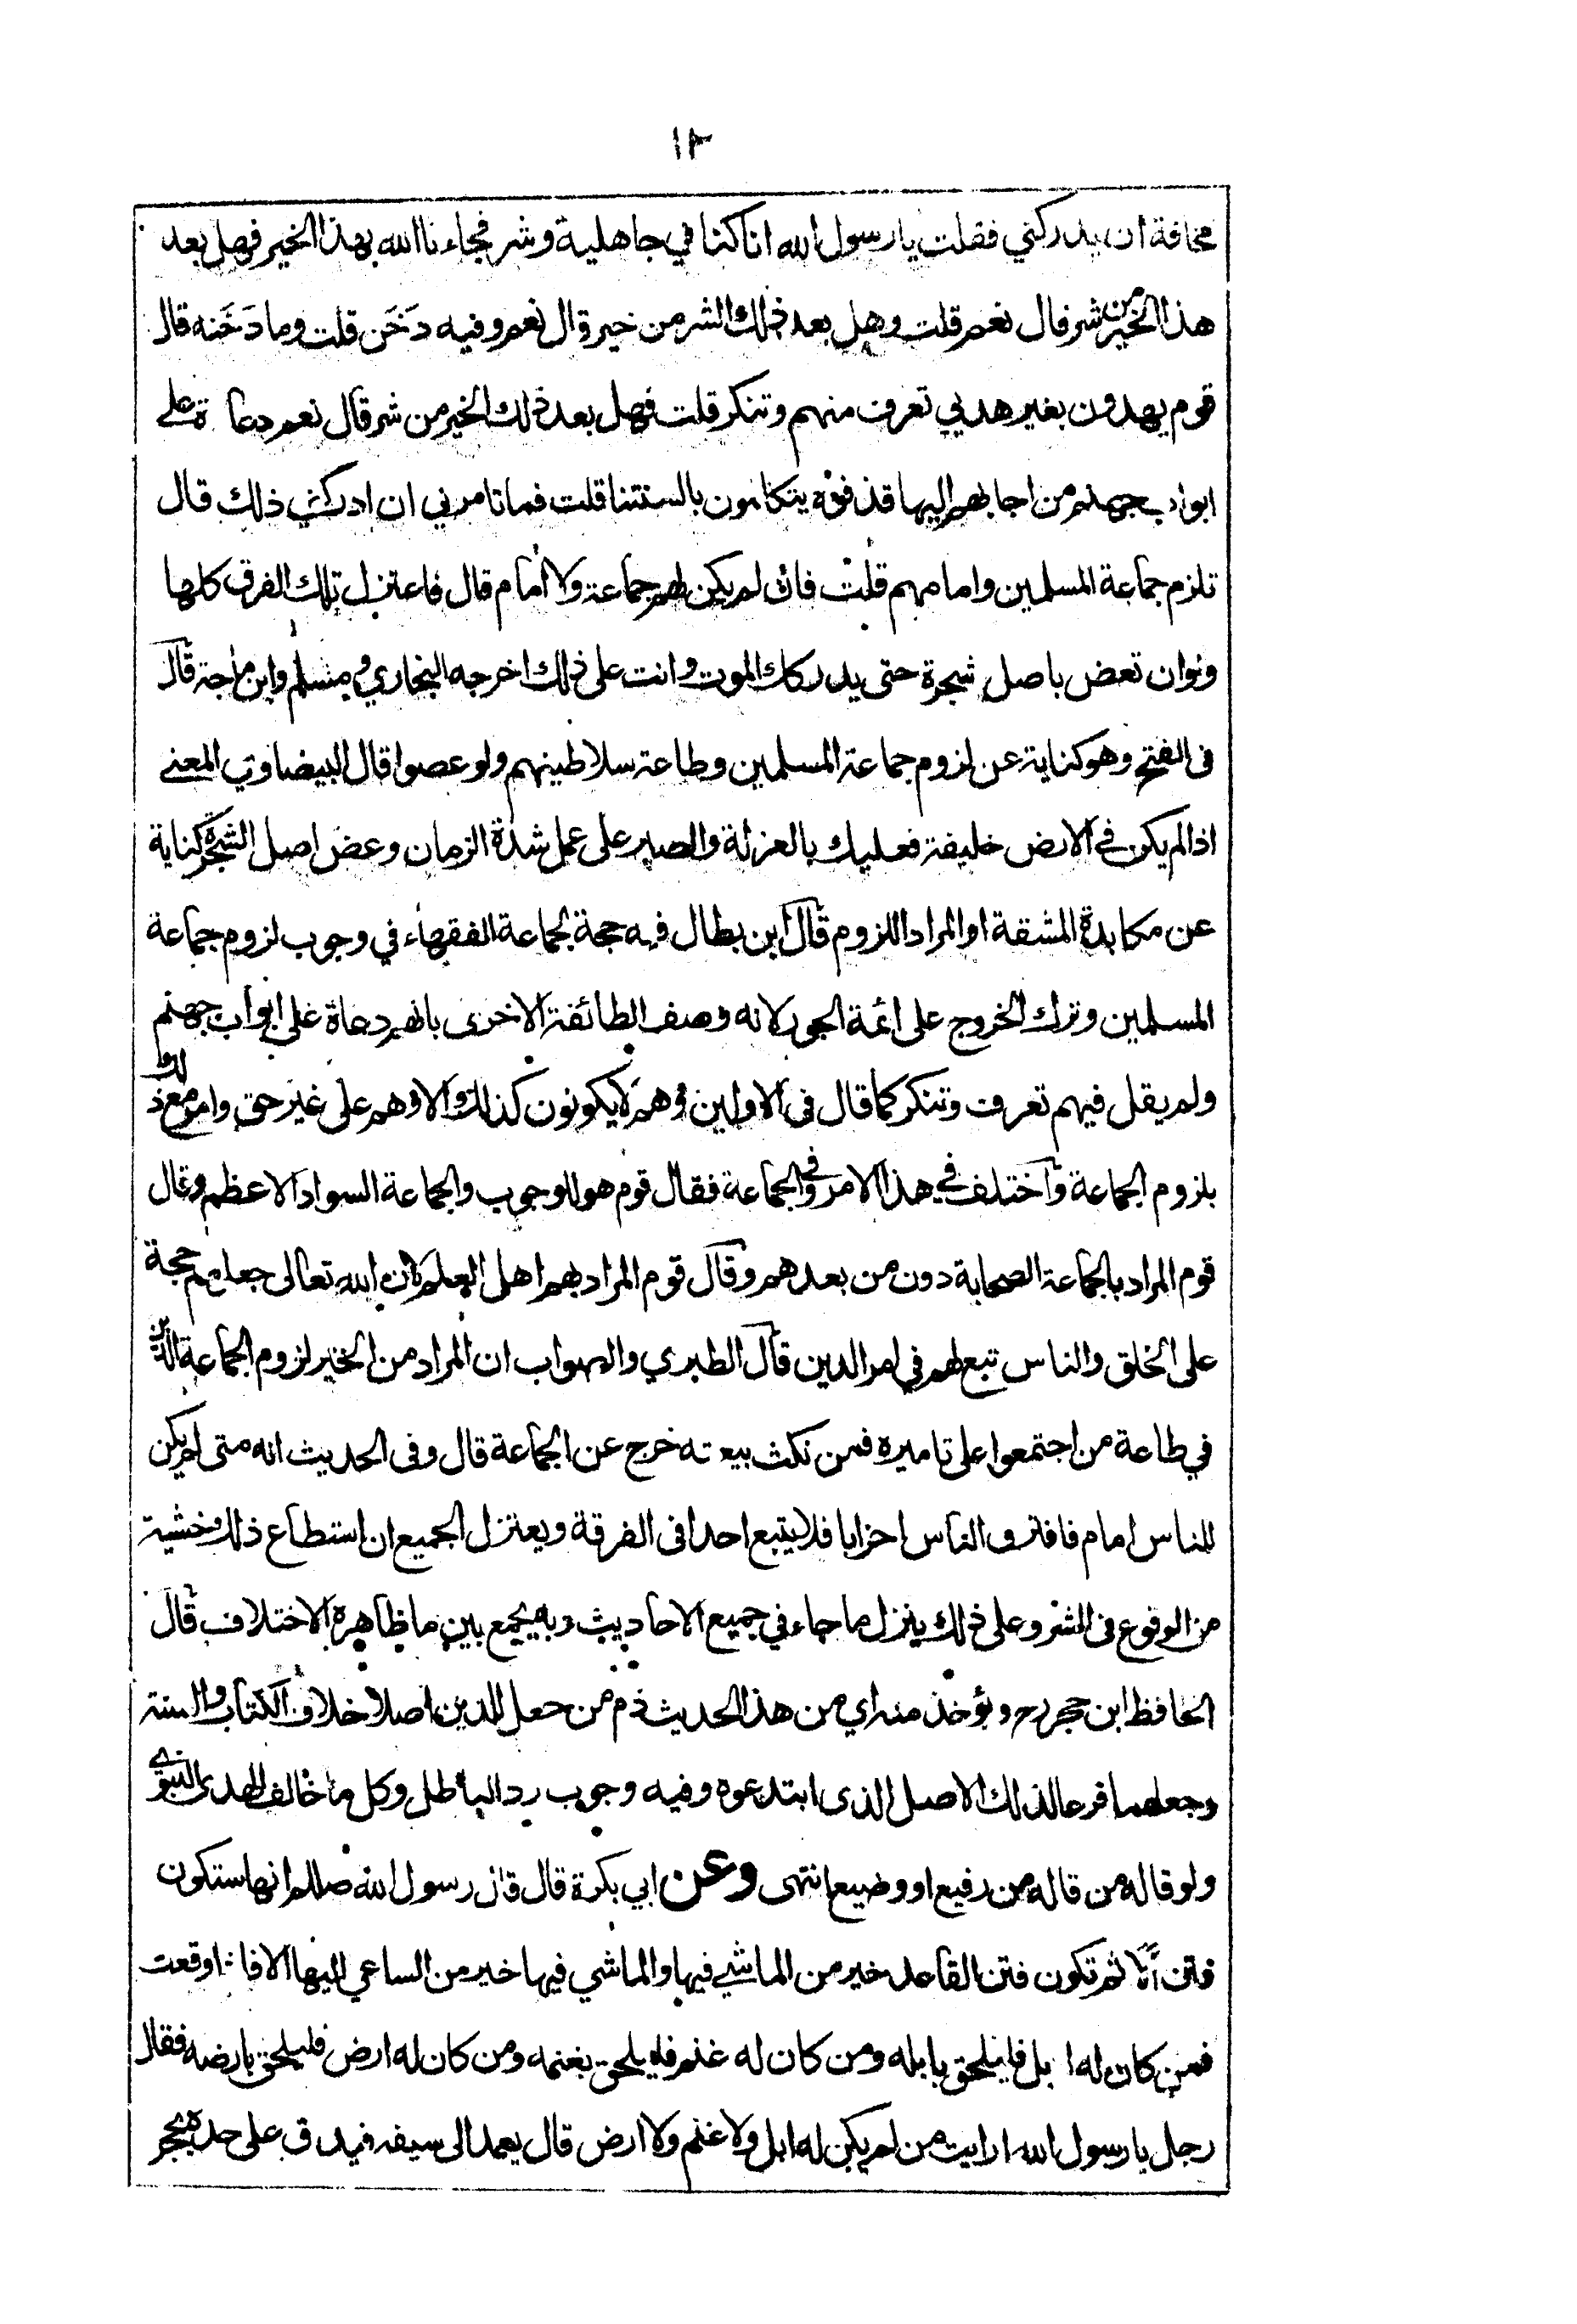 ١٢
مخافة ان يدركني فقلت يا رسول الله انا كنا في جاهلية وشر فجاءنا الله بهذا الخير فهل بعد
هذا الخير من شر قال نعم قلت وهل بعد ذلك الشر من خير قال نعم وفيه دَخَن قلت وما دَخَنه قال
قوم يهدون بغير هديي تعرف منهم وتنكر قلت فهل بعد ذلك الخير من شر قال نعم دعاة على
ابواب جهنم من اجابهم اليها قذفوه يتكلمون بالسنتنا قلت فما تامرني ان ادركني ذلك قال
تلزم جماعة المسلمين وامامهم قلت فان لم يكن لهم جماعة ولا امام قال فاعتزل تلك الفرق كلها
ولوان تعض باصل شجرة حتى يدركك الموت وانت على ذلك اخرجه البخاري ومسلم وابن ماجة قال
فى الفتح وهو كناية عن لزوم جماعة المسلمين وطاعة سلاطينهم ولو عصوا قال البيضاوي المعنے
اذا لم يكن في الارض خليفة فعليك بالعزلة والصبر على عمل شدة الزمان وعض اصل الشجرة كناية
عن مكابدة المشقة او المراد اللزوم قال ابن بطال فيه حجة لجماعة الفقهاء في وجوب لزوم جماعة
المسلمين وترك الخروج على ائمة الجور لانه وصف الطائفة الاخرى بانهم دعاة على ابواب جهنم
ولم يقل فيهم تعرف وتنكر كما قال فى الاولين وهم لا يكونون كذلك والا وهم على غير حق وامر مع ذلك
بلزوم الجماعة واختلف في هذا الامر وفي الجماعة فقال قوم هو للوجوب والجماعة السواد الاعظم وقال
قوم المراد بالجماعة الصحابة دون من بعدهم وقال قوم المراد بهم اهل العلم لان الله تعالى جعلهم حجة
على الخلق والناس تبع لهم في امر الدين قال الطبري والصواب ان المراد من الخير لزوم الجماعة الذين
في طاعة من اجتمعوا على تاميره فمن نكث بيعته خرج عن الجماعة قال وفى الحديث انه متى لم يكن
للناس امام فافترق الناس احزابا فلا يتبع احدا فى الفرقة ويعتزل الجميع ان استطاع ذلك خشية
من الوقوع فى الشر وعلى ذلك ينزل ما جاء في جميع الاحاديث وبه يجمع بين ما ظاهره الاختلاف قال
الحافظ ابن حجر رح ويؤخذ منه اي من هذا الحديث ذم من جعل للدين اصلا خلاف الكتاب والسنة
وجعلهما فرعا لذلك الاصل الذى ابتدعوه وفيه وجوب رد الباطل وكل ما خالف الهدى النبوي
ولو قاله من قاله من رفيع او وضيع انتهى وعن ابي بكرة قال قال رسول الله صللم انها ستكون
فتن الا ثم تكون فتن القاعد خير من الماشي فيها والماشي فيها خير من الساعي اليها الا فاذا وقعت
فمن كان له ابل فليلحق بابله ومن كان له غنم فليلحق بغنمه ومن كان له ارض فليلحق بارضه فقال
رجل يا رسول الله ارايت من لم يكن له ابل ولا غنم ولا ارض قال يعمد الى سيفه فيدق على حده بحجر